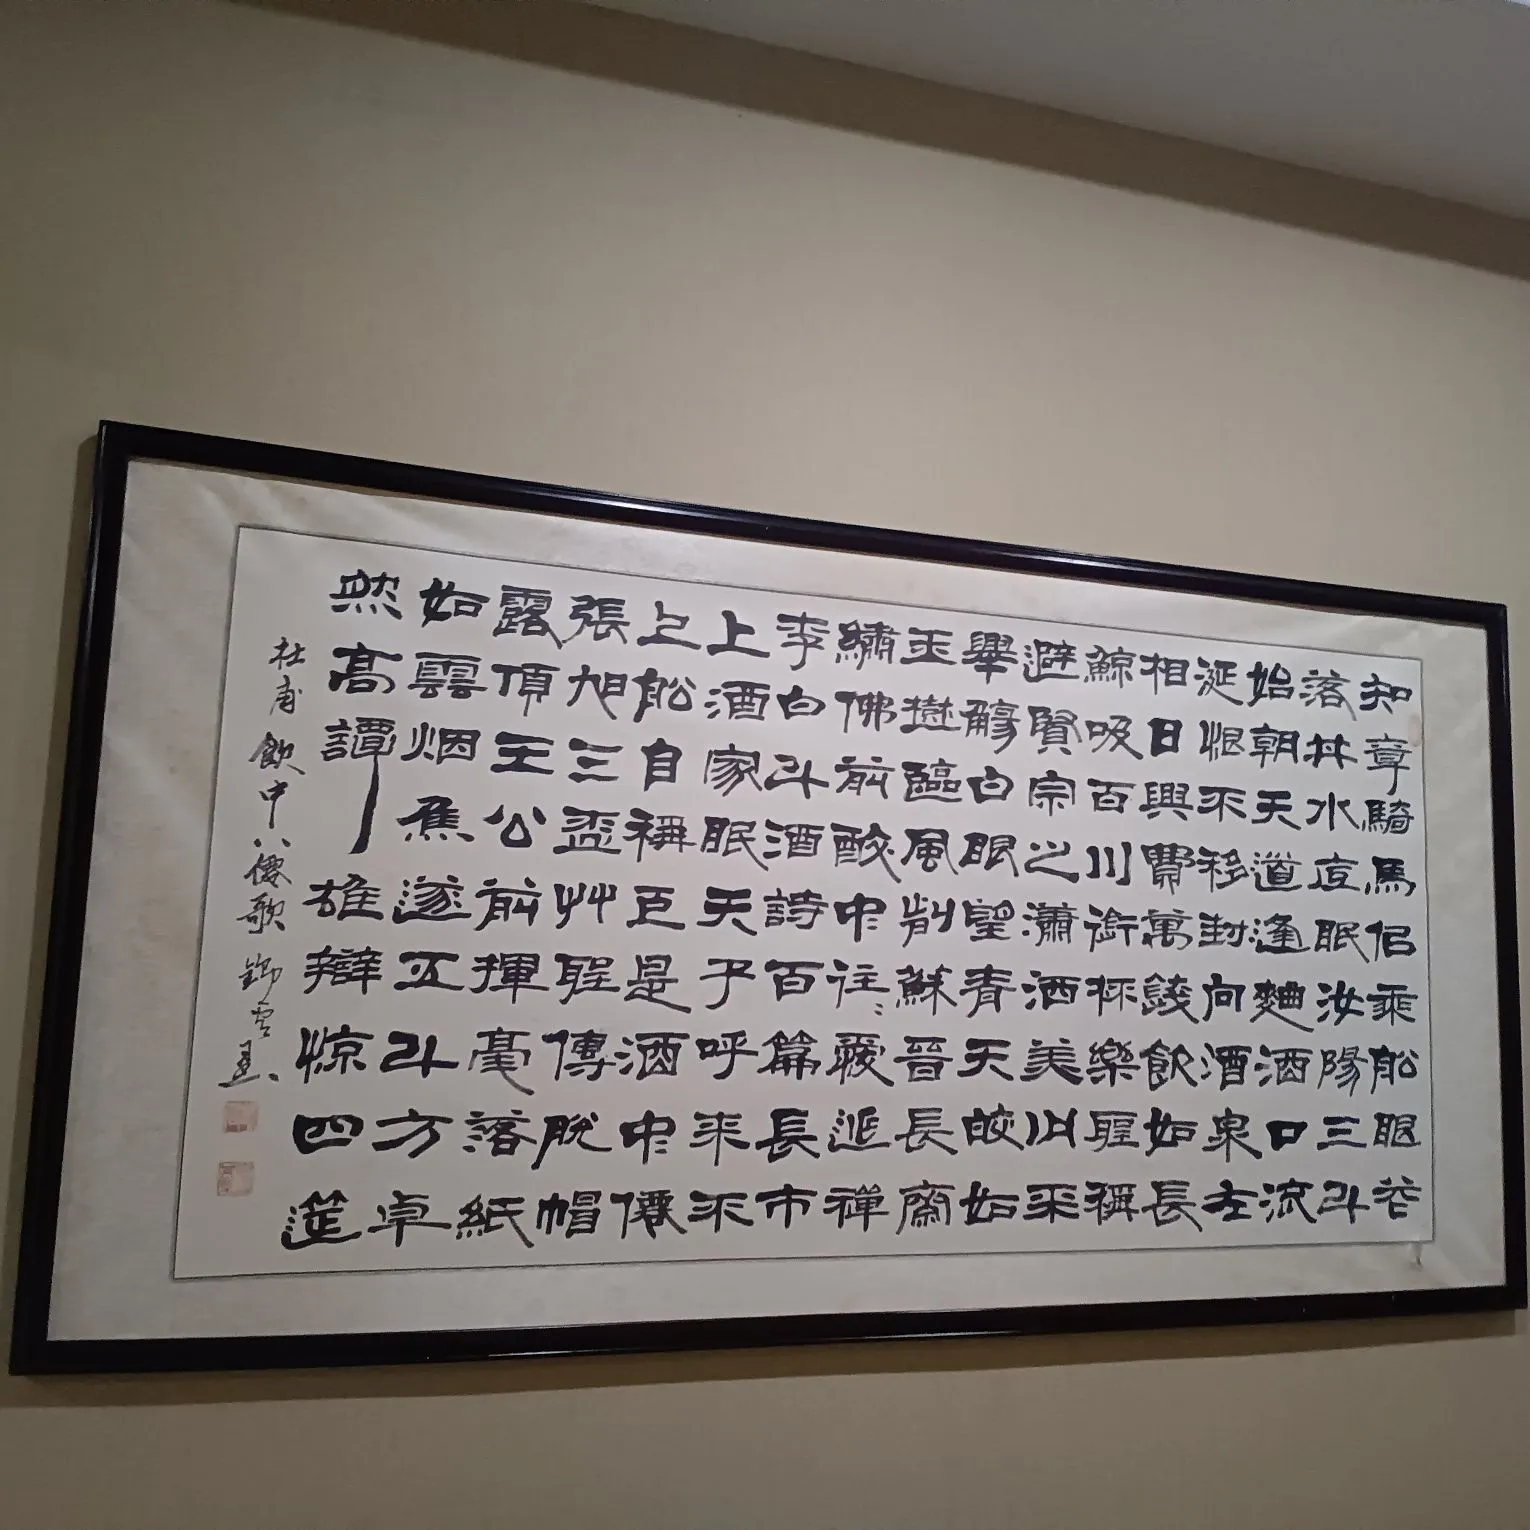 知章騎馬佀乘舩眼花
落井水底眠汝陽三斗
始朝天道逢麴酒口流
涎恨不移封向酒泉左
相日興費萬錢飲如長
鯨吸百川銜杯樂聖稱
避賢宗之瀟洒美少年
舉觴白眼望青天皎如
玉樹臨風前蘇晉長齋
繡佛前醉中往々愛逃禪
李白斗酒詩百篇長市
上酒家眠天子呼來不
上舩自稱臣是酒中僊
張旭三盃艸聖傳脫帽
露頂王公前揮毫落紙
如雲烟焦遂五斗方卓
然高譚雄辯惊四筵
杜甫飲中八僊歌